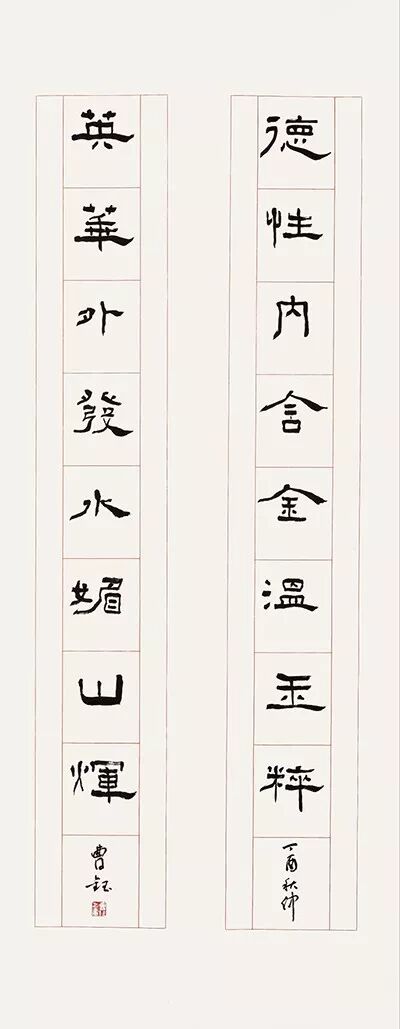 德性内含金温玉粹
丁酉秋仲
英華外發水媚山煇
曹鈺